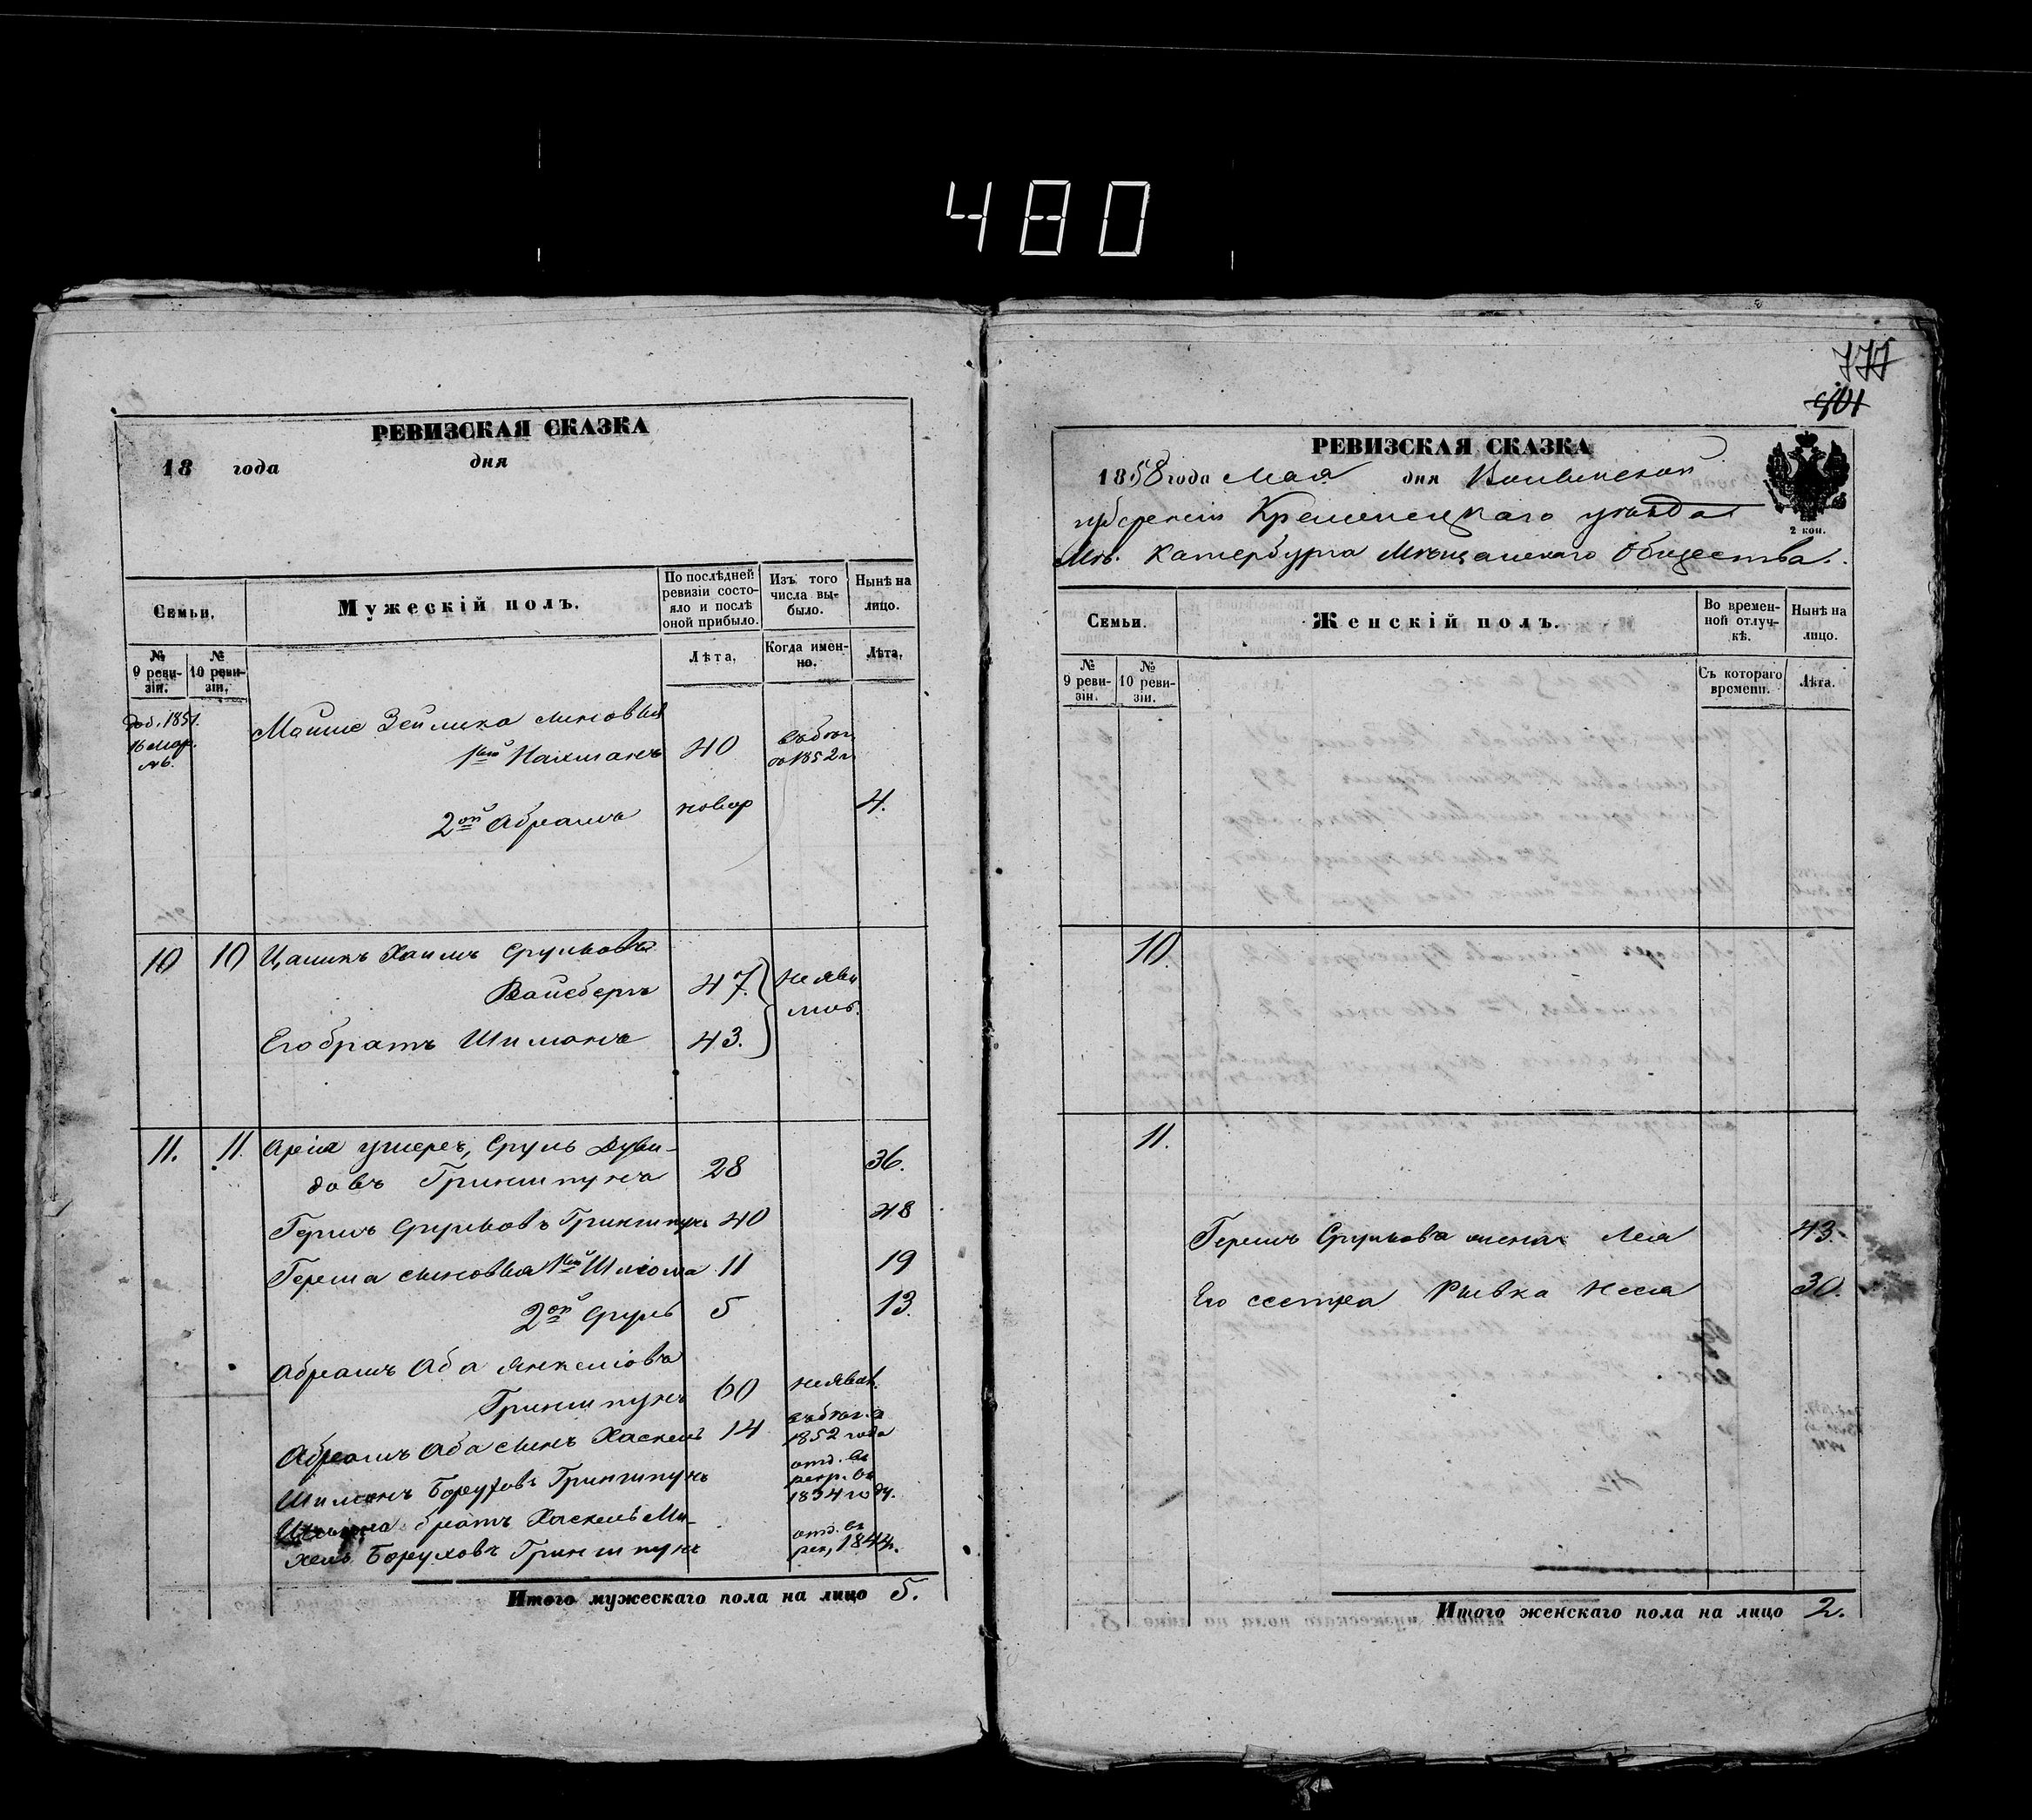 480
РЕВИЗСКАЯ СКАЗКА
18 года дня
Семьи.
Мужескій полъ.
По послѣдней ревизіи состояло и послѣ оной прибыло.
Изъ того числа выбыло.
Нынѣ на лицо.
№ 9 ревизіи.
№ 10 ревизіи.
Лѣта.
Когда именно.
Лѣта.
доб. 1851.
16 мар.
№6.
Мошие Зейлика сыновья
1ый Нахманъ 40 въ бѣг. съ 1852 г.
2ой Абрамъ новор 4.
10 10 Цаликъ Хаимъ Срульовъ
Вайсбергъ 47. не яви
Его братъ Шимонъ 43. лись.
11. 11. Арія Ушеръ, Сруль Дуви-
довъ Гринштунъ 28 36.
Гершъ Срульовъ Гринштунъ 40 48
Герша сыновья 1ый Шліома 11 19
2ой Сруль 5 13.
Абрамъ Аба Янкеліовъ
Гринштунъ 60 неявил.
Абрамъ Аба сынъ Хаскель 14 въ бѣг. съ 1852 года
Шимонъ Боруховъ Гринштунъ отд. въ рекр. въ 1834 году.
братъ Хаскель Ми-
хель Боруховъ Гринштунъ отд. въ рек, 1844.
Итого мужескаго пола на лицо 5.
777
401
РЕВИЗСКАЯ СКАЗКА
1858 года Мая дня Волынской
губерніи Кременецкаго уѣзда
Мѣ. Катербурга Мѣщанскаго Общества.
2 коп.
Семьи.
Женскій полъ.
Во временной отлучкѣ.
Нынѣ на лицо.
№ 9 ревизіи.
№ 10 ревизіи.
Съ котораго времени.
Лѣта.
10.
11.
Гершъ Срульова жена Лея 43.
Его сестра Ривка Неся 30.
Итого женскаго пола на лицо 2.